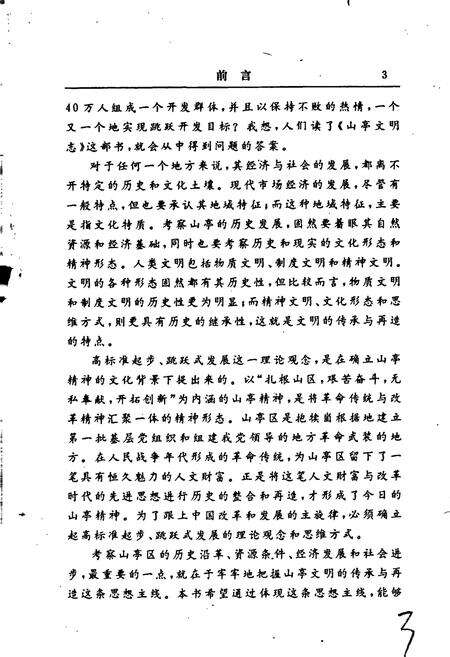 前言 3
40万人组成一个开发群体,并且以保持不败的热情,一个
又一个地实现跳跃开发目标?我想,人们读了《山亭文明
志》这部书,就会从中得到问题的答案。
对于任何一个地方来说,其经济与社会的发展,都离不
开特定的历史和文化土壤。现代市场经济的发展,尽管有
一般特点,但也要承认其地域特征;而这种地域特征,主要
是指文化特质。考察山亭的历史发展,固然要着眼其自然
资源和经济基础,同时也要考察历史和现实的文化形态和
精神形态。人类文明包括物质文明、制度文明和精神文明。
文明的各种形态固然都有其历史性,但比较而言,物质文明
和制度文明的历史性更为明显;而精神文明、文化形态和思
维方式,则更具有历史的继承性,这就是文明的传承与再造
的特点。
高标准起步、跳跃式发展这一理论观念,是在确立山亭
精神的文化背景下提出来的。以“扎根山区,艰苦奋斗,无
私奉献,开拓创新”为内涵的山亭精神,是将革命传统与改
革精神汇聚一体的精神形态。山亭区是抱犊崮根据地建立
第一批基层党组织和组建我党领导的地方革命武装的地
方。在人民战争年代形成的革命传统,为山亭区留下了一
笔具有恒久魅力的人文财富。正是将这笔人文财富与改革
时代的先进思想进行历史的整合和再造,才形成了今日的
山亭精神。为了跟上中国改革和发展的主旋律,必须确立
起高标准起步、跳跃式发展的理论观念和思维方式。
考察山亭区的历史沿革、资源条件、经济发展和社会进
步,最重要的一点,就在于牢牢地把握山亭文明的传承与再
造这条思想主线。本书希望通过体现这条思想主线,能够
3